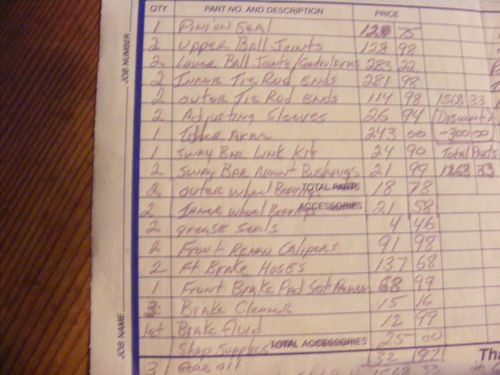 QTY. PART NO. AND DESCRIPTION PRICE
1 Pinion Seal 75
2 Upper Ball Joints 128 98
2 Lower Ball Joints/Control Arms 283 22
2 Inner Tie Rod Ends 281 98
2 Outer Tie Rod Ends 114 98 1568 33
2 Adjusting Sleeves 26 94 Discount
1 Idler Arm 243 00 -300 00
1 Sway Bar Link Kit 24 90 Total Parts
2 Sway Bar Mount Bushings 21 99 1268 33
2 Outer Wheel Bearings TOTAL PARTS 18 78
ACCESSORIES
2 Inner Wheel Bearings 21 58
2 Grease Seals 4 46
2 Front Calipers 91 98
2 Ft Brake Hoses 137 68
1 Front Brake Pad Set 68 99
3 Brake Cleaner 15 16
1qt Brake Fluid 12 99
Shop Supplies TOTAL ACCESSORIES 25 00
3 Gear oil 32 97
1568 33
JOB NUMBER
JOB NAME